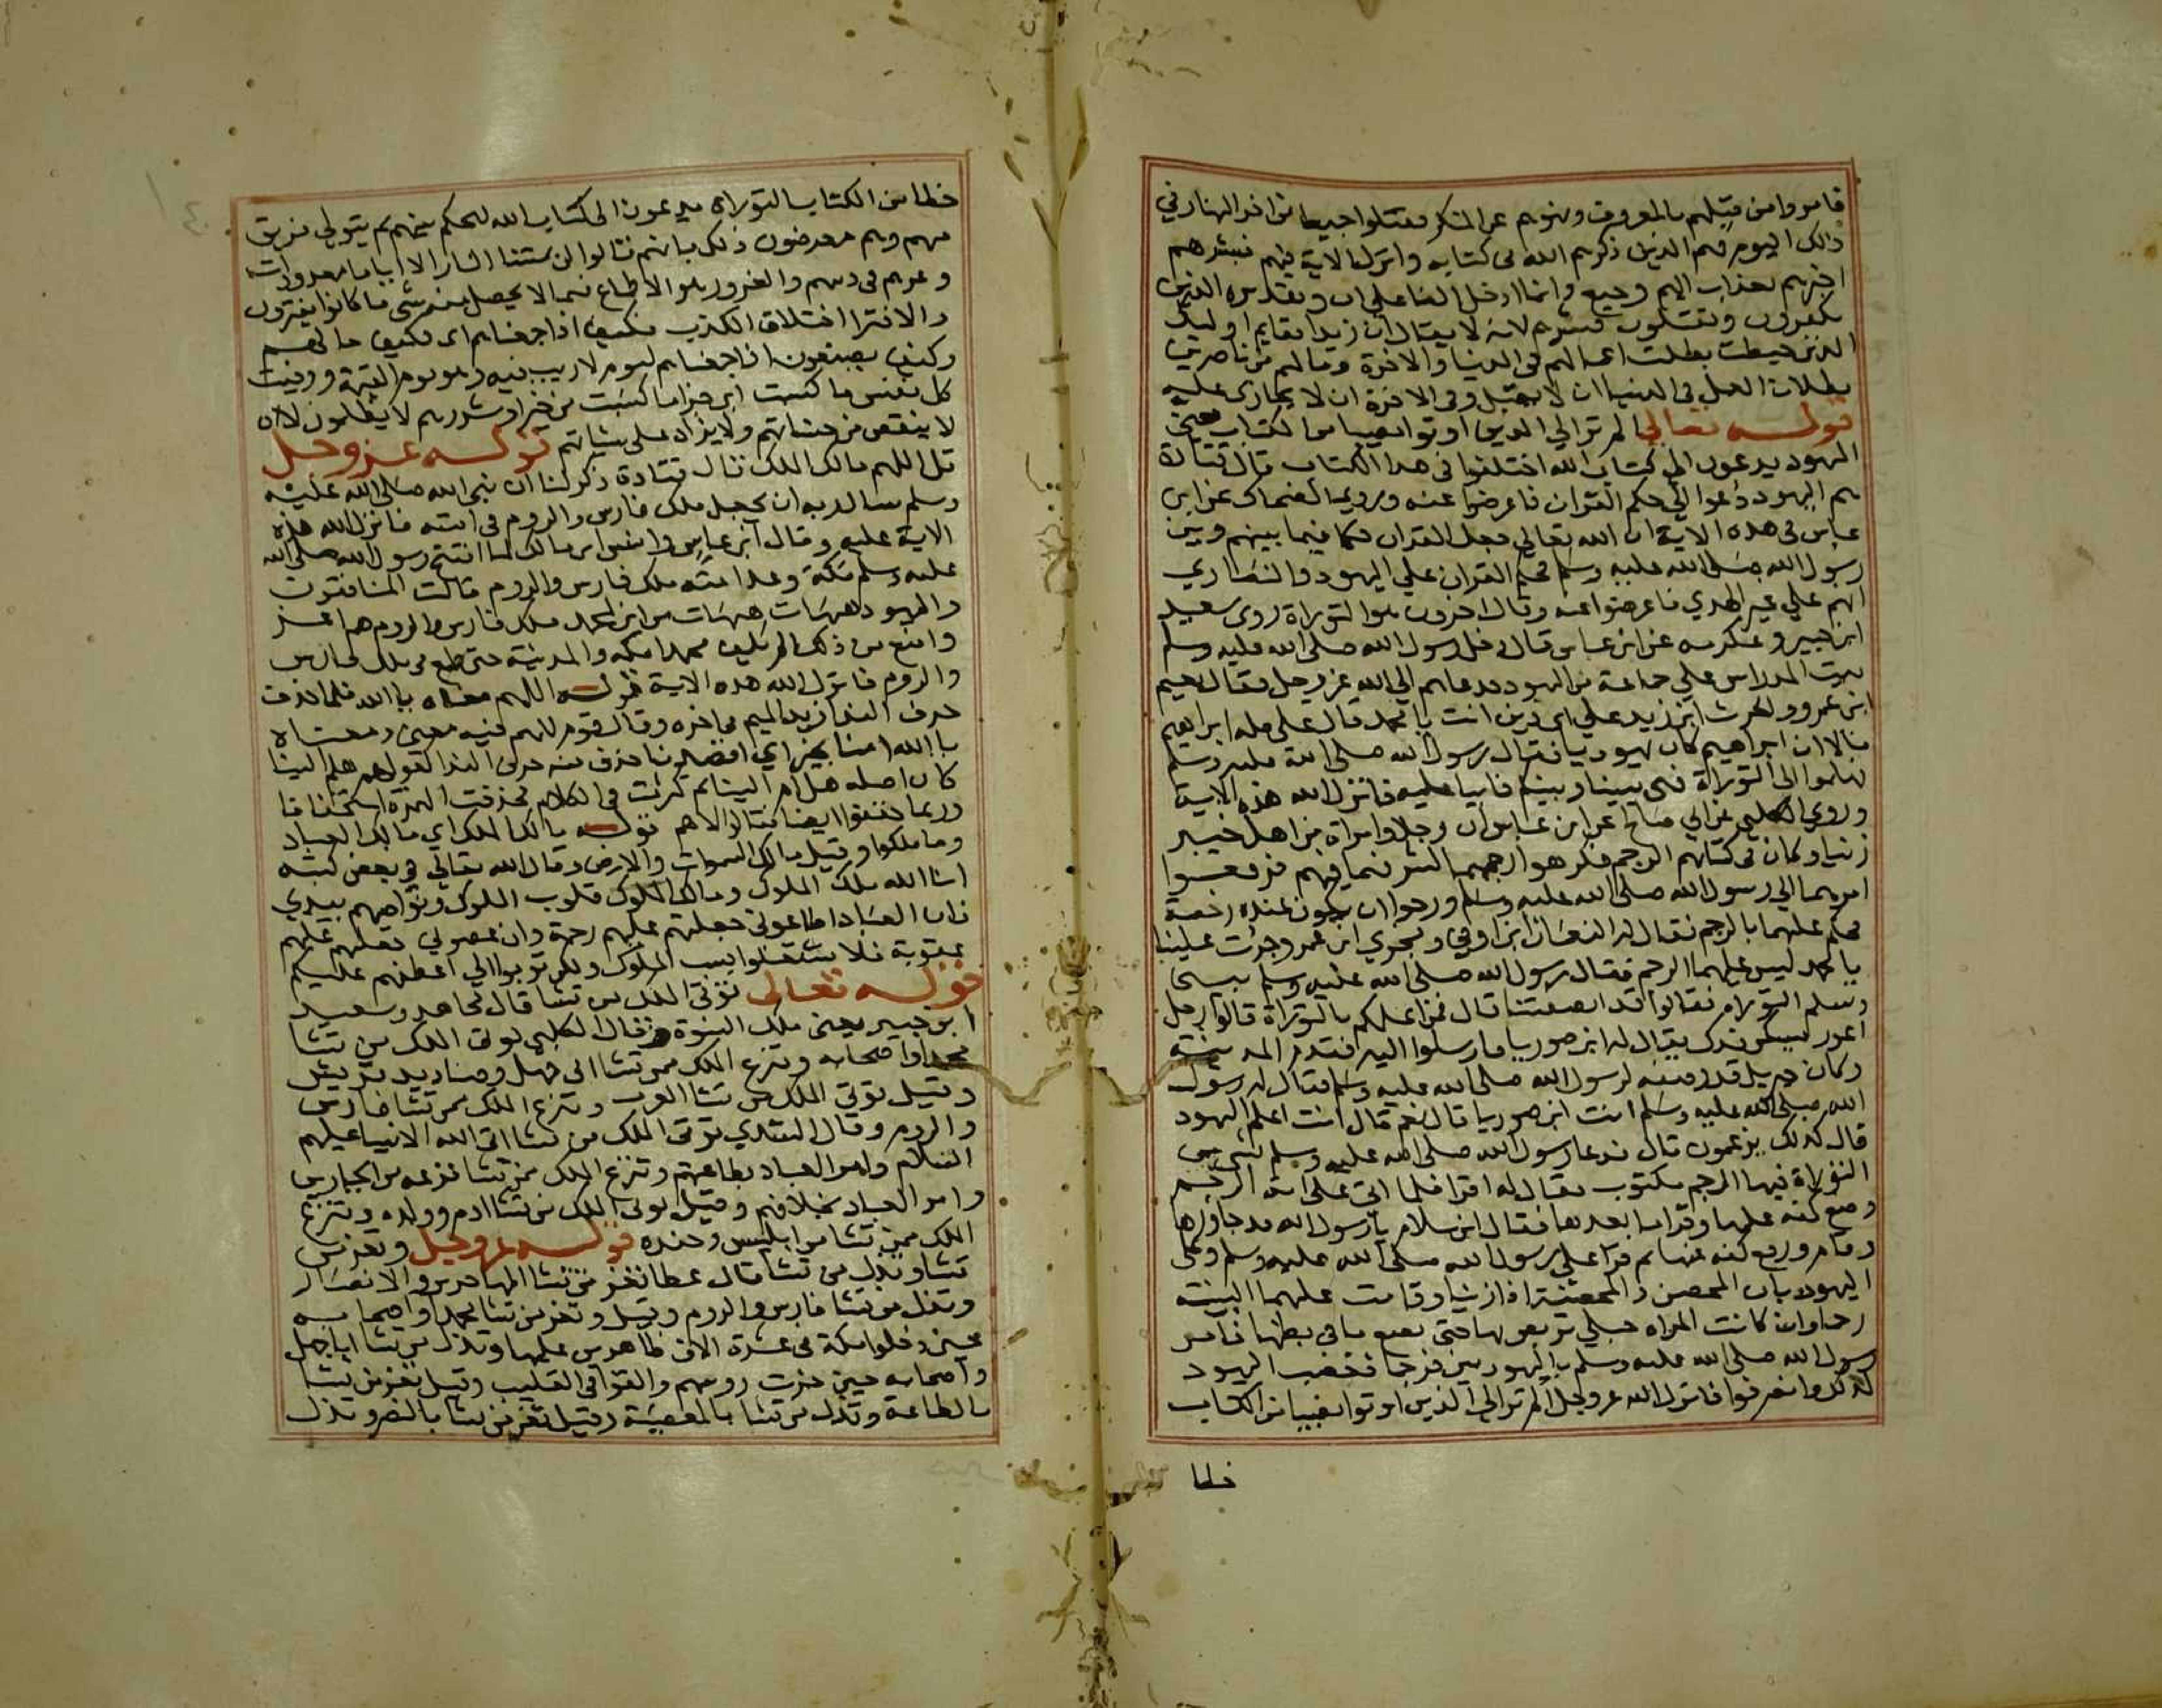 فامروا من قتلهم بالمعروف ونهوهم عن المنكر فقتلوا جميعا من اخر النهار في
ذلك اليوم فهم الذين ذكرهم الله في كتابه وانزل الاية فيهم فبشرهم
اخبرهم بعذاب اليم وجيع وانما ادخل الفا على ان وتقديره الذين
يكفرون ويقتلون فبشرهم لانه لا يقال ان زيدا فقايم اوليك
الذين حبطت بطلت اعمالهم في الدنيا والاخرة وما لهم من ناصرين
بطلان العمل في الدنيا ان لا يقبل وفي الاخرة ان لا يجازى عليه
قوله تعالى الم تر الي الذين اوتوا نصيبا من الكتاب يعني
اليهود يدعون الي كتاب الله اختلفوا في هذا الكتاب قال قتادة
هم اليهود دعوا الي حكم القران فاعرضوا عنه وروي الضحاك عن ابن
عباس في هذه الاية ان الله تعالي جعل القران حكما فيما بينهم وبين
رسول الله صلى الله عليه وسلم فحكم القران علي اليهود والنصاري
انهم علي غير الهدي فاعرضوا عنه وقال اخرون هو التوراة روى سعيد
ابن جبير وعكرمه عن ابن عباس قال دخل رسول الله صلى الله عليه وسلم
بيت المدراس علي جماعة من اليهود فدعاهم الي الله عز وجل فقال نعيم
ابن عمرو والحرث ابن زيد علي اي دين انت يا محمد قال على ملة ابراهيم
قالا ان ابراهيم كان يهوديا فقال رسول الله صلى الله عليه وسلم
فهلموا الى التوراة فهي بيننا وبينكم فابيا عليه فانزل الله هذه الاية
وروي الكلبي عن ابي صالح عن ابن عباس ان رجلا وامراة من اهل خيبر
زنيا وكان في كتابهم الرجم فكرهوا رجمهما لشرفهما فيهم فرفعوا
امرهما الي رسول الله صلى الله عليه وسلم ورجوا ان يكون عنده رخصة
فحكم عليهما بالرجم فقال له النعمان ابن اوفي وبحري ابن عمرو جرت علينا
يا محمد ليس عليهما الرجم فقال رسول الله صلى الله عليه وسلم بيني
وبينكم التوراه فقالوا قد انصفتنا قال فمن اعلمكم بالتوراة قالوا رجل
اعور يسكن فدك يقال له ابن صوريا فارسلوا اليه فقدم المدينة
وكان جبريل قد وصفه لرسول الله صلى الله عليه وسلم فقال له رسول
الله صلى الله عليه وسلم انت ابن صوريا قال نعم قال انت اعلم اليهود
قال كذلك يزعمون قال فدعا رسول الله صلى الله عليه وسلم بشي من
التوراة فيها الرجم مكتوب فقال له اقرا فلما اتي على اية الرجم
وضع كفه عليها وقرا ما بعدها فقال ابن سلام يا رسول الله قد جاوزها
وقام ورفع كفه عنها ثم قرا علي رسول الله صلى الله عليه وسلم وعلى
اليهود بان المحصن والمحصنة اذا زنيا وقامت عليهما البينة
رجما وان كانت المراه حبلي تربص بها حتى تضع ما في بطنها فامر
رسول الله صلى الله عليه وسلم باليهوديين فرجما فغضب اليهود
لذلك وانصرفوا فانزل الله عز وجل الم تر الي الذين اوتوا نصيبا من الكتاب
خطا
خطا من الكتاب التوراة يدعون الي كتاب الله ليحكم بينهم ثم يتولى فريق
منهم وهم معرضون ذلك بانهم قالوا لن تمسنا النار الا اياما معدودات
وغرهم في دينهم والغرور هو الاطماع فيما لا يحصل منه شي ما كانوا يفترون
والافترا اختلاق الكذب فكيف اذا جمعناهم اي فكيف حالهم
وكيف يصنعون اذا جمعناهم ليوم لا ريب فيه وهو يوم القيمة ووفيت
كل نفس ما كسبت اي جزا ما كسبت من خير او شر وهم لا يظلمون لا
لا ينقص من حسناتهم ولا يزاد على سياتهم قوله عز وجل
قل اللهم مالك الملك قال قتادة ذكر لنا ان نبي الله صلى الله عليه
وسلم سال ربه ان يجعل ملك فارس والروم في امته فانزل الله هذه
الاية عليه وقال ابن عباس وانس ابن مالك لما افتتح رسول الله صلى الله
عليه وسلم مكة وعد امته ملك فارس والروم قالت المنافقون
واليهود هيهات هيهات من اين لمحمد ملك فارس والروم هم اعز
وامنع من ذلك الم يكف محمدا مكه والمدينة حتى طمع في ملك فارس
والروم فانزل الله هذه الاية قوله اللهم معناه يا الله فلما حذف
حرف الندا زيد الميم في اخره وقال قوم للميم فيه معني ومعناه
يا الله امنا بخير اي اقصدنا حذف منه حرف الندا كقولهم هلم الينا
كان اصله هل ام الينا ثم كثرت في الكلام فحذفت الهمزة استخفافا
وربما خففوا ايضا فقالوا لاهم قوله مالك الملك اي مالك العباد
وما ملكوا وقيل مالك السموات والارض وقال الله تعالي في بعض كتبه
انا الله ملك الملوك ومالك الملوك قلوب الملوك ونواصيهم بيدي
فان العباد اطاعوني جعلتهم عليهم رحمة وان عصوني جعلتهم عليهم
عقوبة فلا تشتغلوا بسب الملوك ولكن توبوا الي اعطفهم عليكم
قوله تعالى توتي الملك من تشا قال مجاهد وسعيد
ابن جبير يعني ملك النبوة وقال الكلبي توتي الملك من تشا
محمدا واصحابه وتنزع الملك ممن تشا ابي جهل وصناديد قريش
وقيل توتي الملك من تشا العرب وتنزع الملك ممن تشا فارس
والروم وقال السدي توتي الملك من تشا اتي الله الانبيا عليهم
السلام وامر العباد بطاعتهم وتنزع الملك ممن تشا نزعه من الجبارين
وامر العباد بخلافهم وقيل توتي الملك من تشا ادم وولده وتنزع
الملك ممن تشا من ابليس وجنده قوله عز وجل وتعز من
تشا وتذل من تشا قال عطا تعز من تشا المهاجرين والانصار
وتذل من تشا فارس والروم وقيل وتعز من تشا محمدا واصحابه
حين دخلوا مكة في عشرة الاف ظاهرين عليها وتذل من تشا ابا جهل
واصحابه حين حزت روسهم والقوا في القليب وقيل تعز من تشا
بالطاعة وتذل من تشا بالمعصية وقيل تعز من تشا بالنصر وتذل